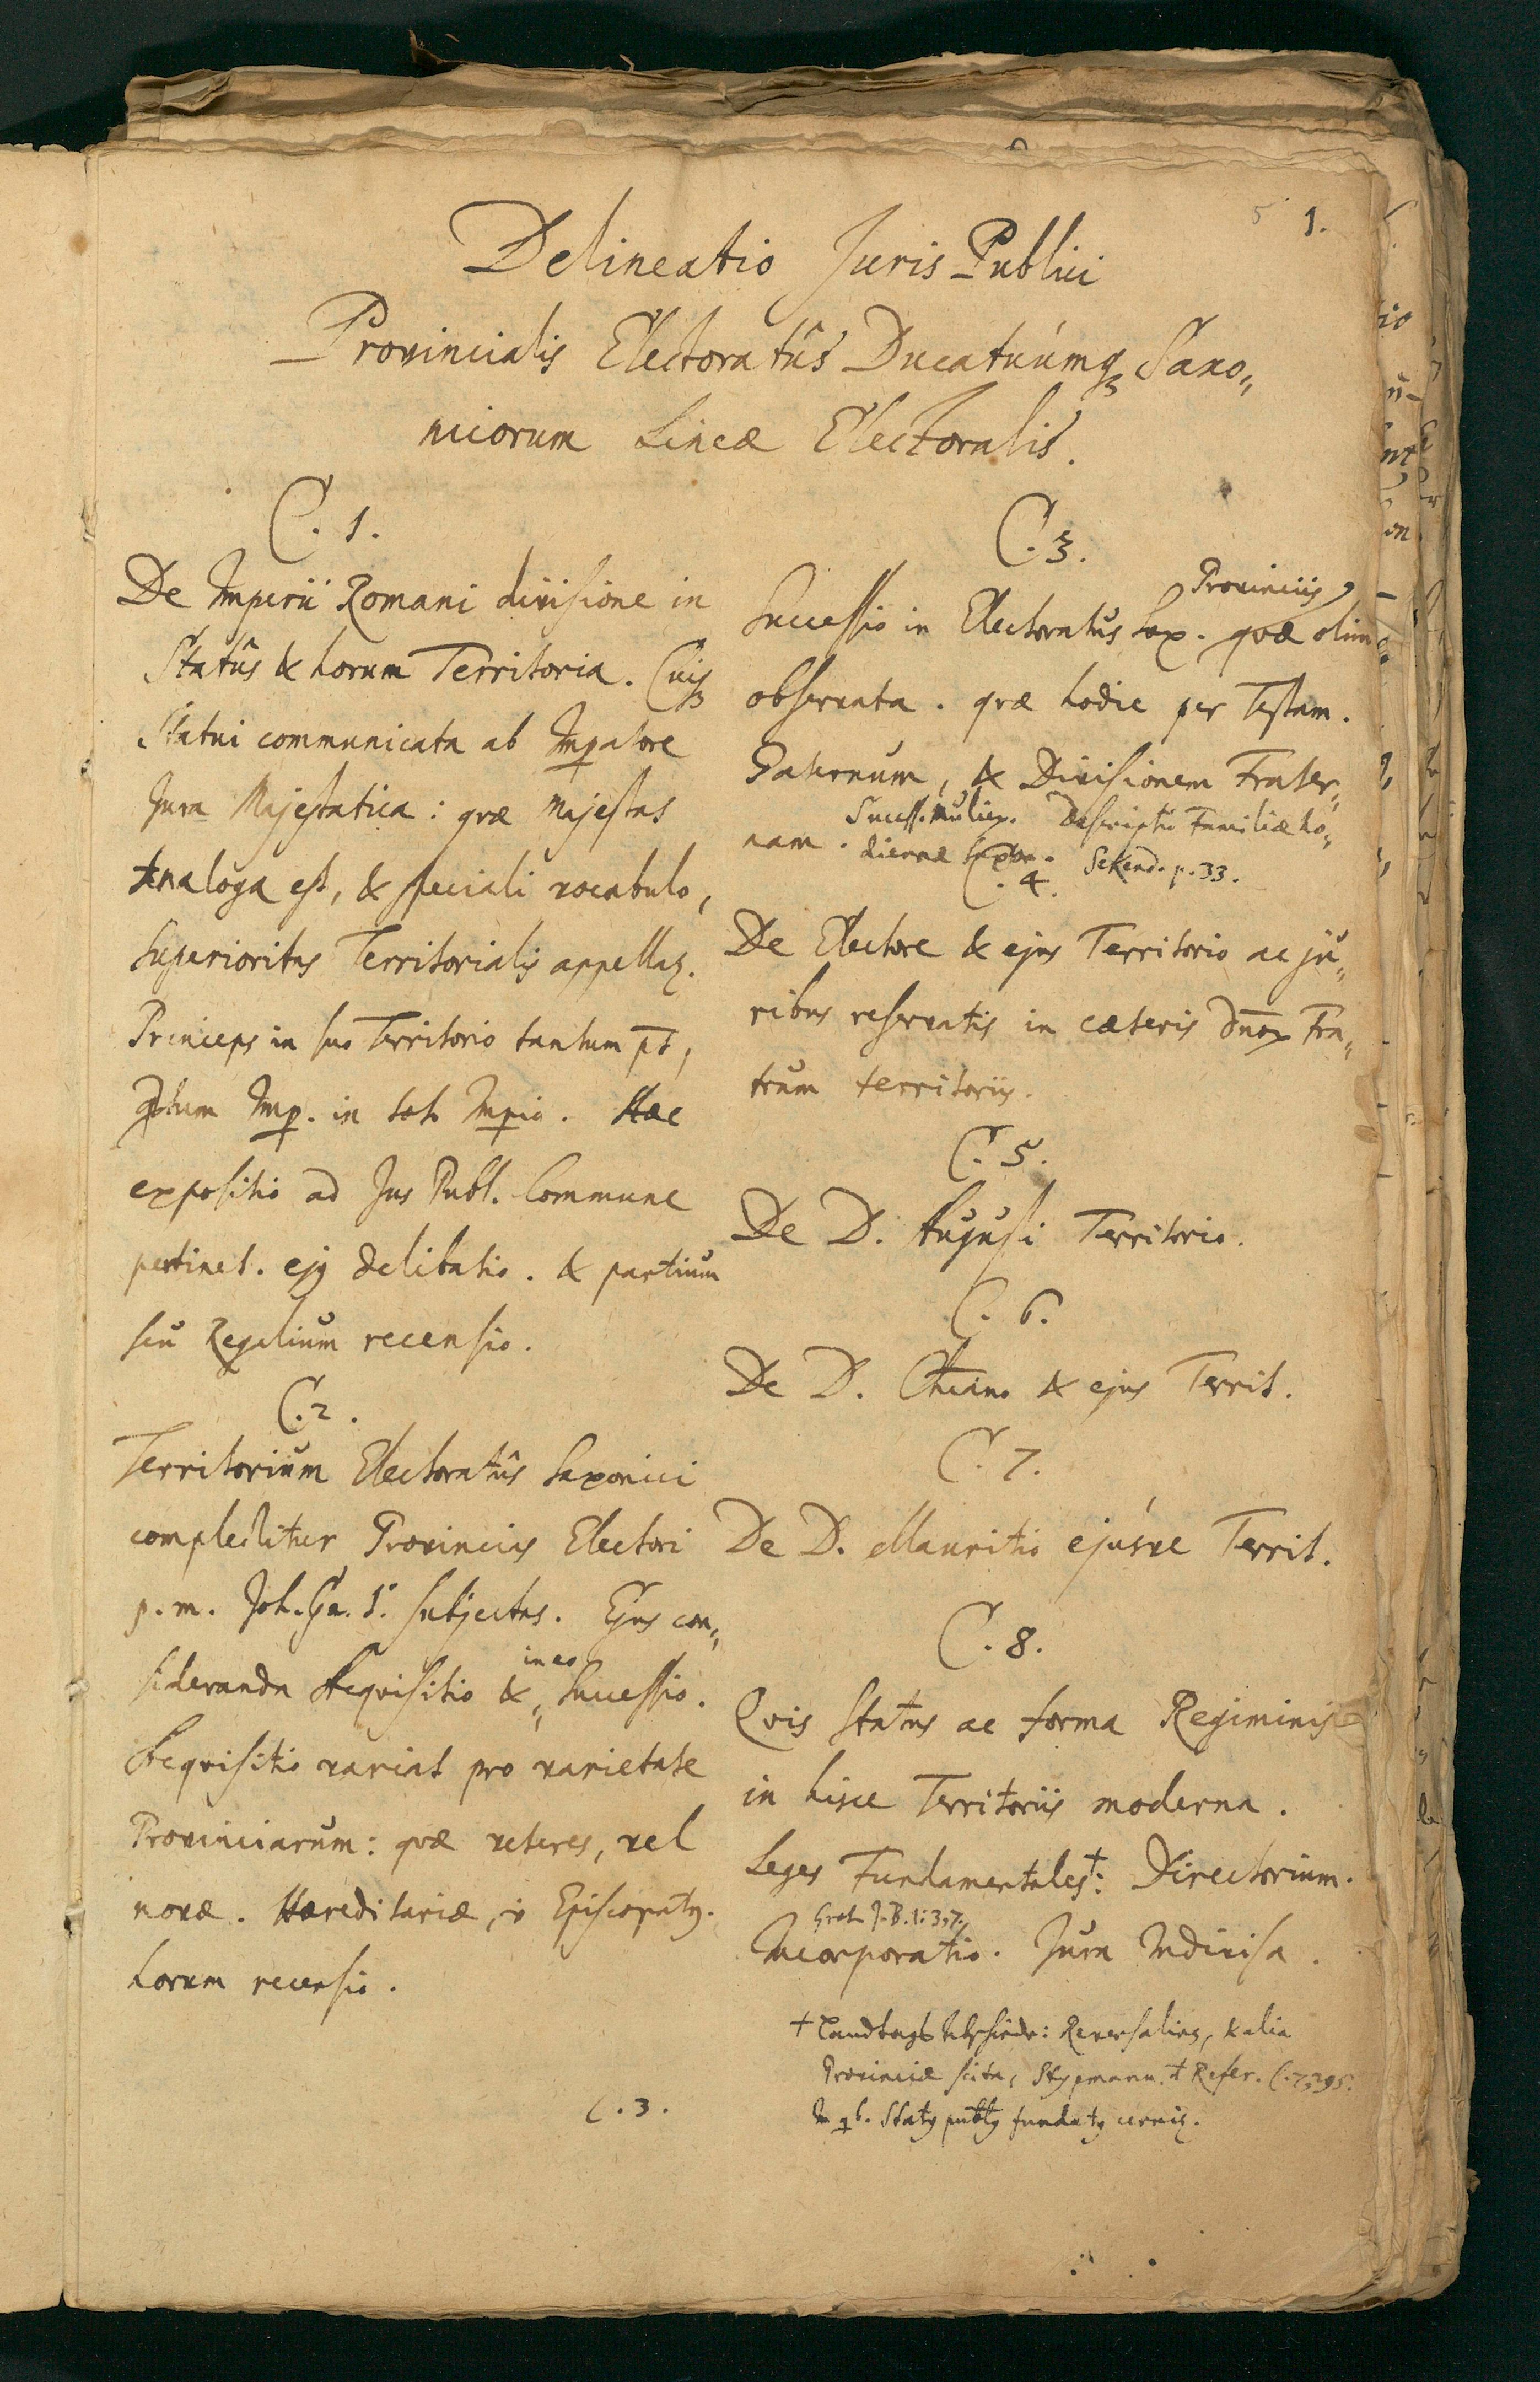 1.
Delineatio Juris Publici
Provincialis Electoratûs Ducatuúmq₃ Saxo„
nicorum Lineæ Electoralis.
C. 1.
De Imperii Romani divisione in
Statûs & horum Territoria. Cuiq₃
Statui communicata ab Impatore
Jura Majestatica: quæ Majestas
Analoga est, & speciali vocabulo,
Superioritas Territorialis appellaꝫ.
Princeps in suo Territorio tantum pt,
qtum Imp. in toto Impio. Hæc
expositio ad Jus Publ. Commune
pertinet. ejꝰ delibatio. & partium
seu Regalium recensio.
C. 2.
Territorium Electoratûs Saxonici
complectitur Provincias Electori
p. m. Joh. Ge. 1. subjectas. Ejus con„
sideranda Acquisitio & „ in eo Successio.
Acquisitio variat pro varietate
Provinciarum: quæ veteres, vel
novæ. Hæreditariæ, Episcopatꝰ.
horum recensio.
C. 3.
C. 3.
Provinciis
Successio in Electoratûs Sax. quæ olim
observata. quæ hodie per Testam.
Paternum, & Divisionem Frater„
nam. Success. mulier. Descriptio Familiæ ho„
diernæ Saxon. Sekend. p. 33.
C. 4.
De Electore & ejus Territorio ac ju„
ribus reservatis in cæteris Dnoꝝ Fra„
trum territoriis.
C. 5.
De D. Augusti Territorio.
C. 6.
De D. Christiano & ejus Territ.
C. 7.
De D. Mauritio ejusve Territ.
C. 8.
Qvis Status ac forma Regiminis
in hisce Territoriis moderna.
Leges Fundamentales†: Directorium.
Grot. J. B. 1: 3, 7.
Incorporatio. Jura Indivisa.
† Landtags Abschiede: Reversalies, & alia
Provinciæ scita, Stypmann. † Refer. C. 7, 295.
Statꝰ publꝰ fundatꝰ